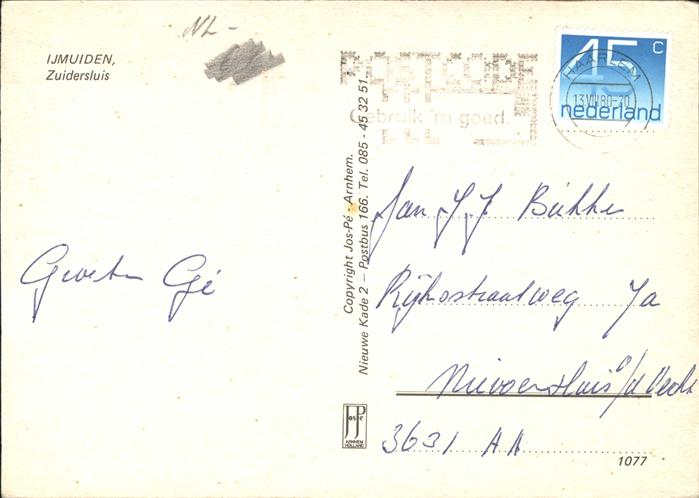 NL-
IJMUIDEN,
Zuidersluis
Gebruik 'm goed.
45 C
HAARLEM
13.VII.80-20
nederland
Groeten Gé
Copyright Jos-Pé - Arnhem.
Nieuwe Kade 2 – Postbus 166. Tel. 085 - 45 32 51
Rijksstraatweg 7a
Nieuwersluis a/d Vecht
3631 AA
JosPé
ARNHEM
HOLLAND
1077